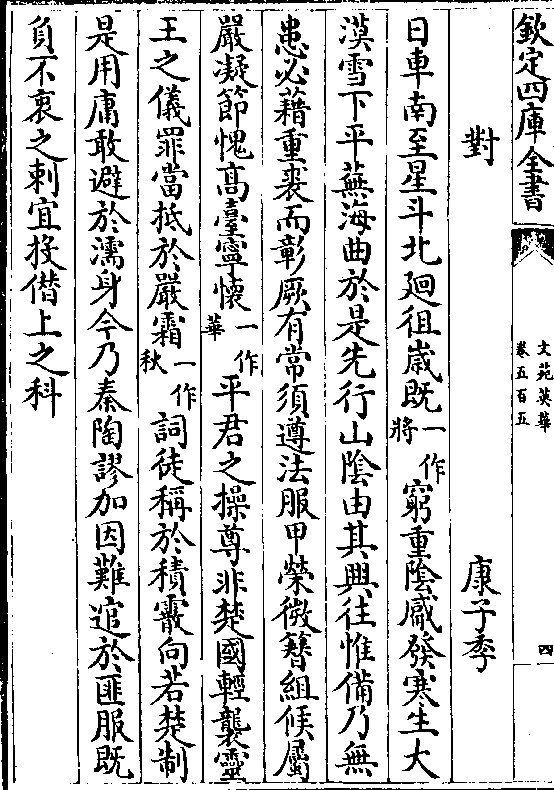 欽定四庫全書
文苑英華
卷五百五
四
對
康子季
日車南至星斗北廻徂歳既一作將窮重陰慼發寒生大
漠雪下平蕪海曲於是先行山陰由其興往惟備乃無
患必藉重裘而彰厥有常須遵法服甲榮微簪組候屬
嚴凝節愧髙臺寧懷一作華平君之操尊非楚國輕襲靈
王之儀罪當抵於嚴霜一作秋詞徒稱於積霰向若楚制
是用庸敢避於濡身今乃秦陶謬加因難逭於匪服既
負不衷之刺宜投僭上之科